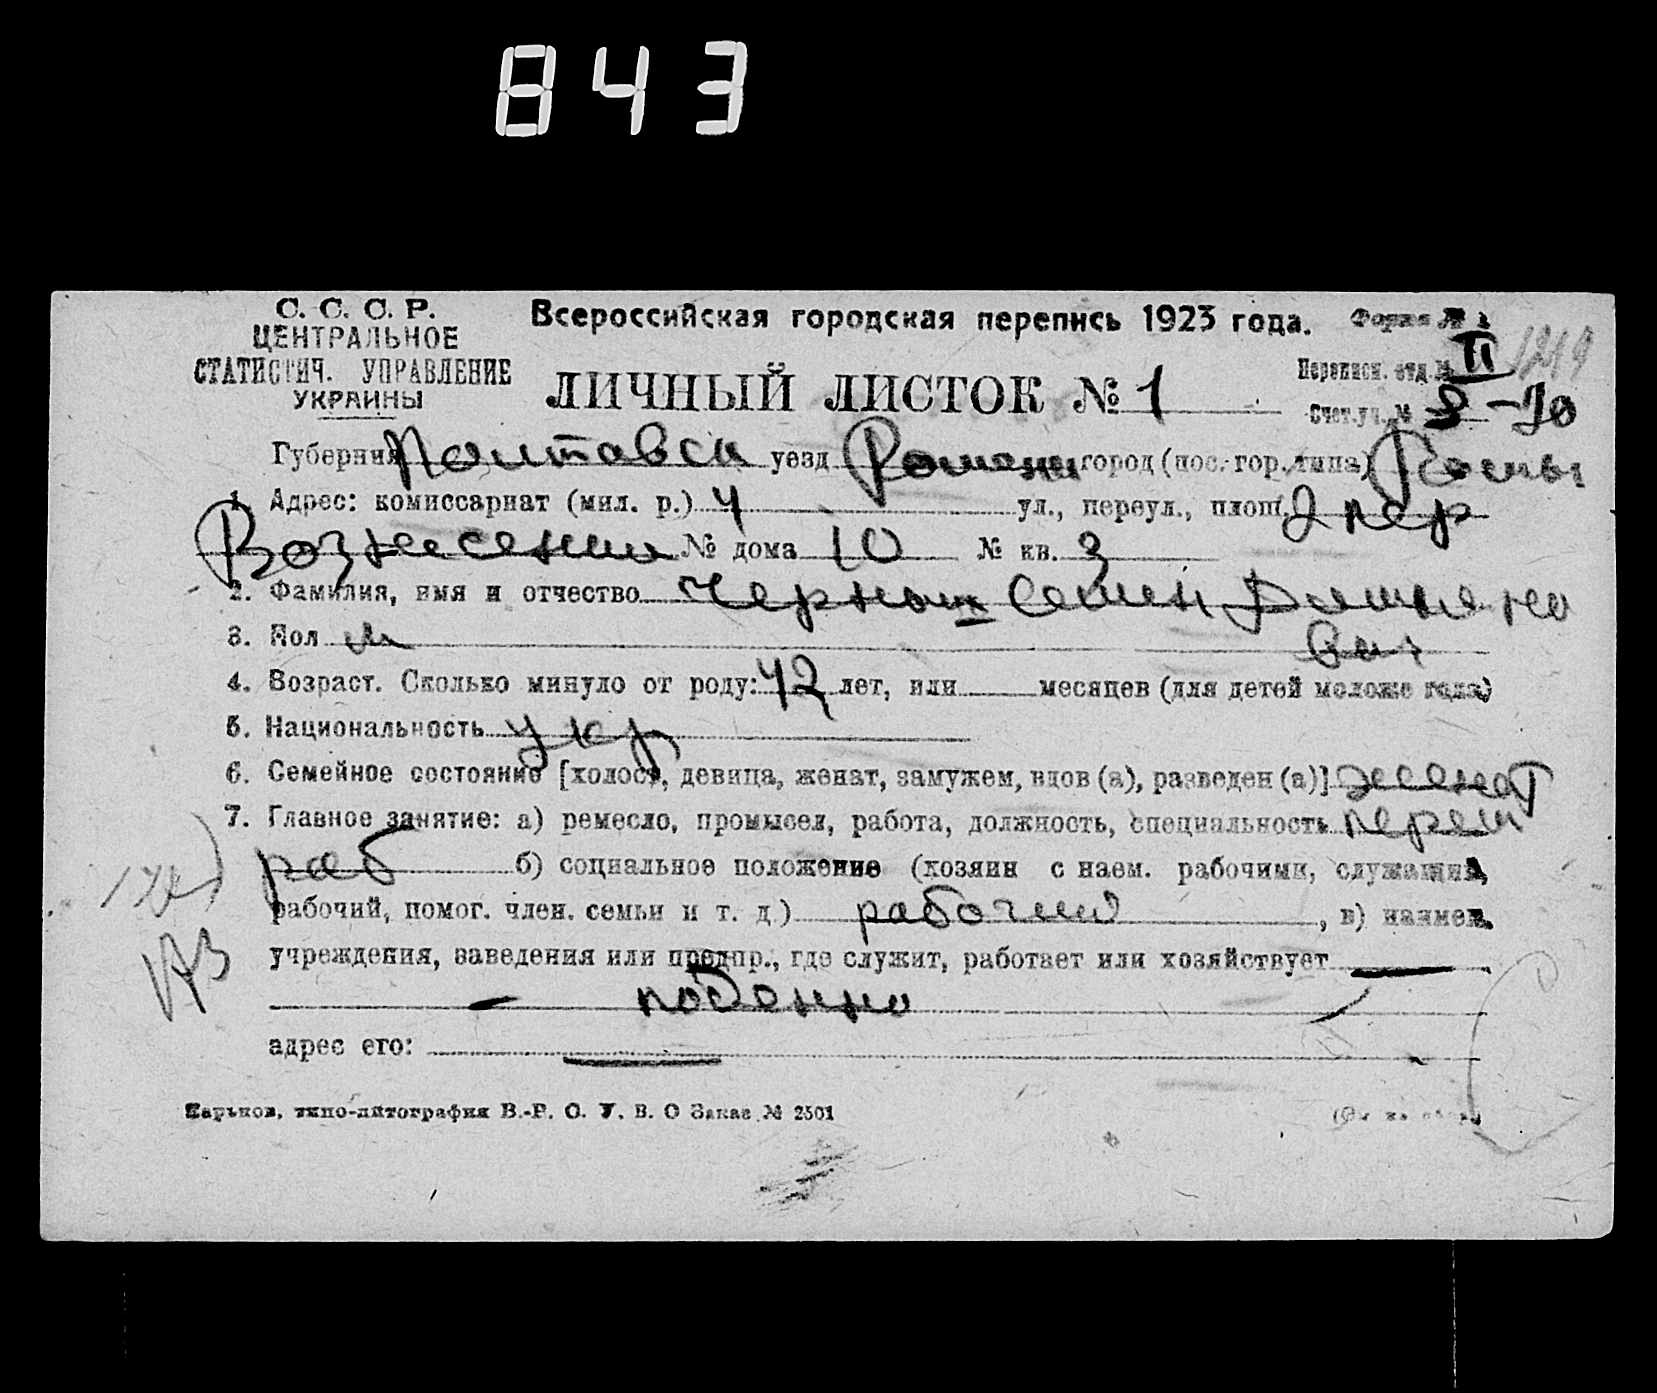 843
С. С. С. Р.
ЦЕНТРАЛЬНОЕ
СТАТИСТИЧ. УПРАВЛЕНИЕ
УКРАИНЫ
Всероссийская городская перепись 1923 года.
Форма № 1
ЛИЧНЫЙ ЛИСТОК № 1
Переписн. отд. № VI 1219
Счет. уч. № 8 – 70
Губерния Полтавск уезд Роменщ город (пос. гор. типа) Ромны
1. Адрес: комиссариат (мил. р.) 4 ул., переул., площ. 2 пер
Вознесенски № дома 10 № кв. 3
2. Фамилия, имя и отчество Черныш Семен
вич
3. Пол м
4. Возраст. Сколько минуло от роду: 42 лет, или месяцев (для детей моложе года)
5. Национальность укр
6. Семейное состояние [холост, девица, женат, замужем, вдов (а), разведен (а)] женат
7. Главное занятие: а) ремесло, промысел, работа, должность, специальность
раб б) социальное положение (хозяин с наем. рабочими, служащий,
рабочий, помог. член. семьи и т. д) рабочий , в) наимен.
учреждения, заведения или предпр., где служит, работает или хозяйствует —
— поденно
адрес его: —
Харьков, типо-литография В.-Р. С. У. В. О Заказ № 2501